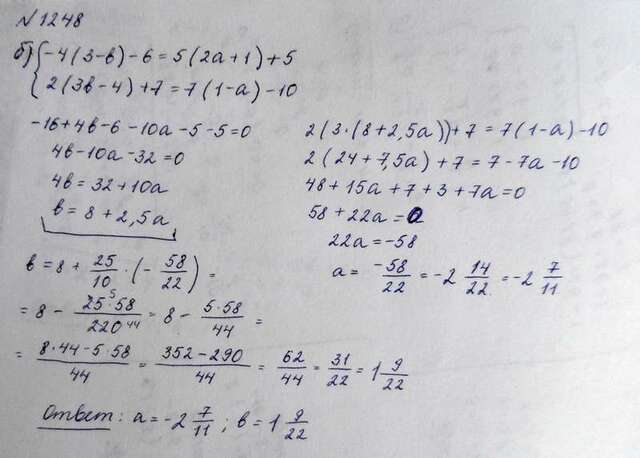 №1248
б) { -4(3-b)-6=5(2a+1)+5
2(3b-4)+7=7(1-a)-10
-16+4b-6-10a-5-5=0
4b-10a-32=0
4b=32+10a
b=8+2,5a
2(3·(8+2,5a))+7=7(1-a)-10
2(24+7,5a)+7=7-7a-10
48+15a+7+3+7a=0
58+22a=0
22a=-58
a= -58/22 = -2 14/22 = -2 7/11
b=8+ 25/10 ·(- 58/22)=
=8- 25 5·58/220 44 = 8- 5·58/44 =
= 8·44-5·58/44 = 352-290/44 = 62/44 = 31/22 = 1 9/22
Ответ: a=-2 7/11; b=1 9/22